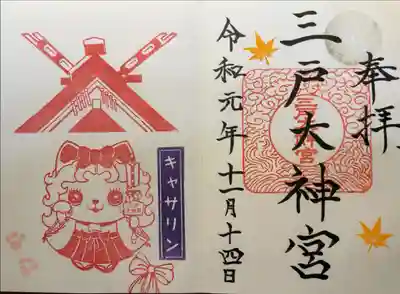 奉拝
三戸大神宮
令和元年十一月十四日
キャサリン